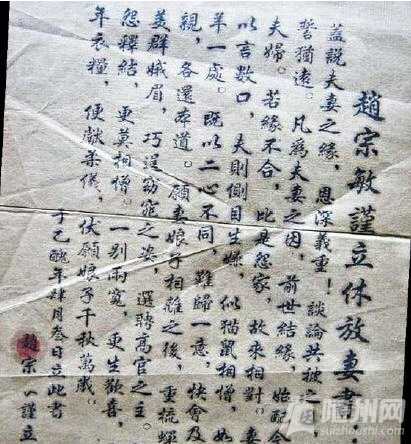 趙宗敏謹立休放妻書
蓋説夫妻之緣，恩深義重！談論共被之
誓猶遠。凡為夫妻之因，前世結緣，始配今
夫婦。若緣不合，比是怨家，故來相對。妻
以言數口，夫則側目生嫌，似猫鼠相憎，如
羊一處。既以二心不同，難歸一意，快會及
親，各還本道。願妻娘子相離之後，重梳蟬
美群娥眉，巧逞窈窕之姿，選聘高官之主。
怨釋結，更莫相憎。一别兩寬，更生歡喜，
年衣糧，便獻柔儀，伏願娘子千秋萬歲。
于乙醜年肆月叁日立此書
趙宗謹立
随州网
suizhoushi.com